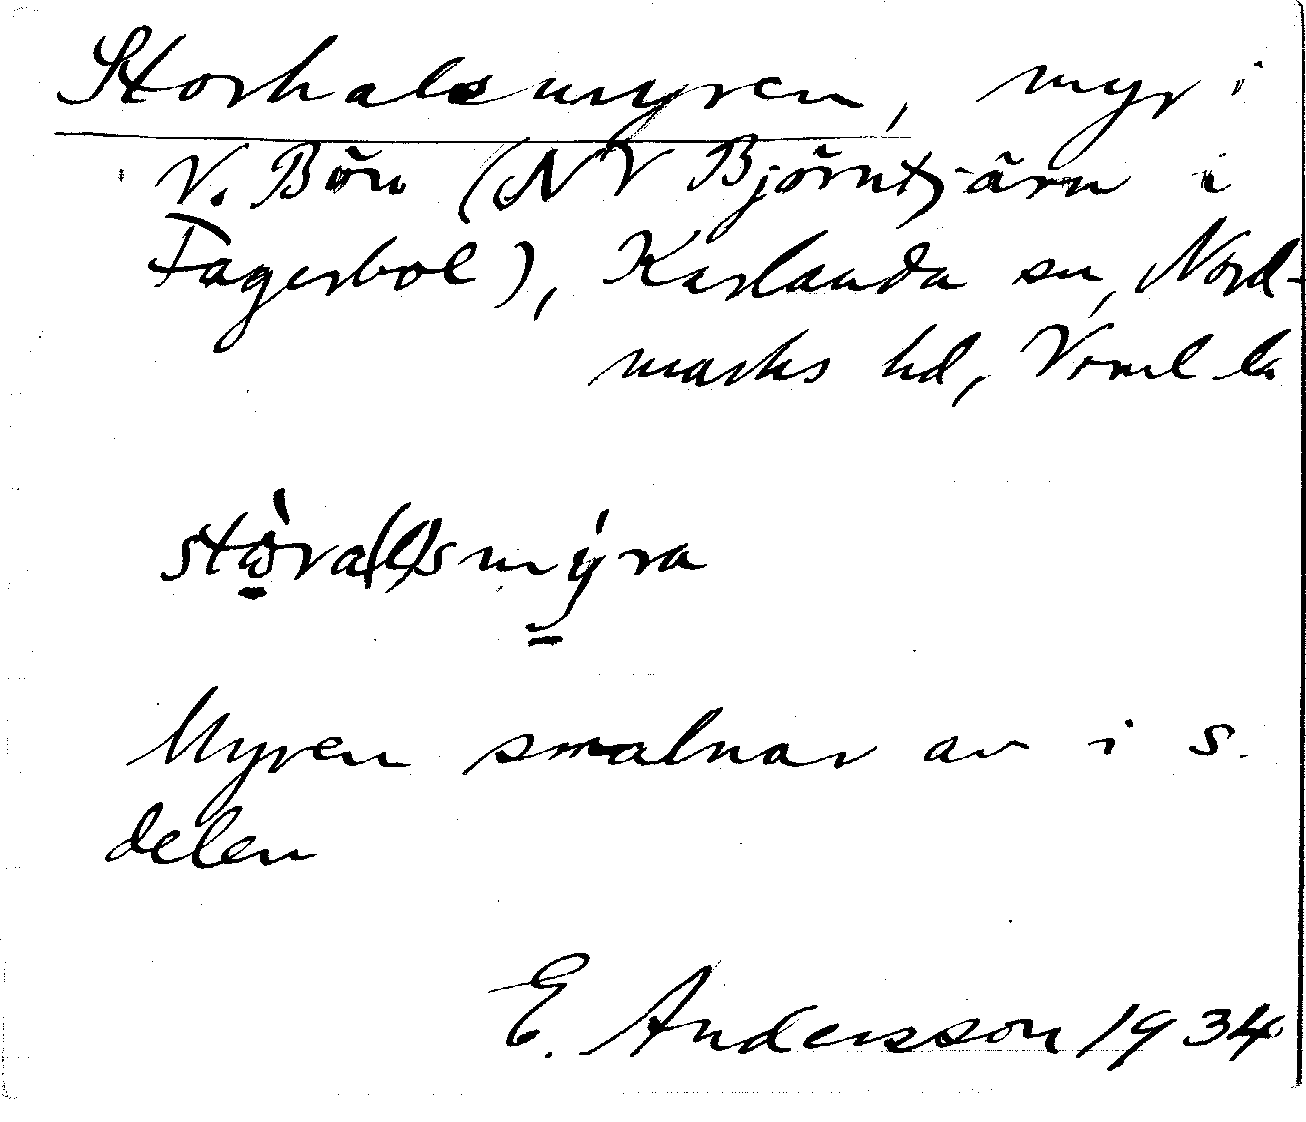 Storhalsmyren, myr i
V. Bön (NV Björntjärn i
Fagerbol), Karlanda sn, Nord-
marks hd, Vrml ln
stòra(l)smýra
Myren smalnar av i s.
delen
E. Andersson 1934